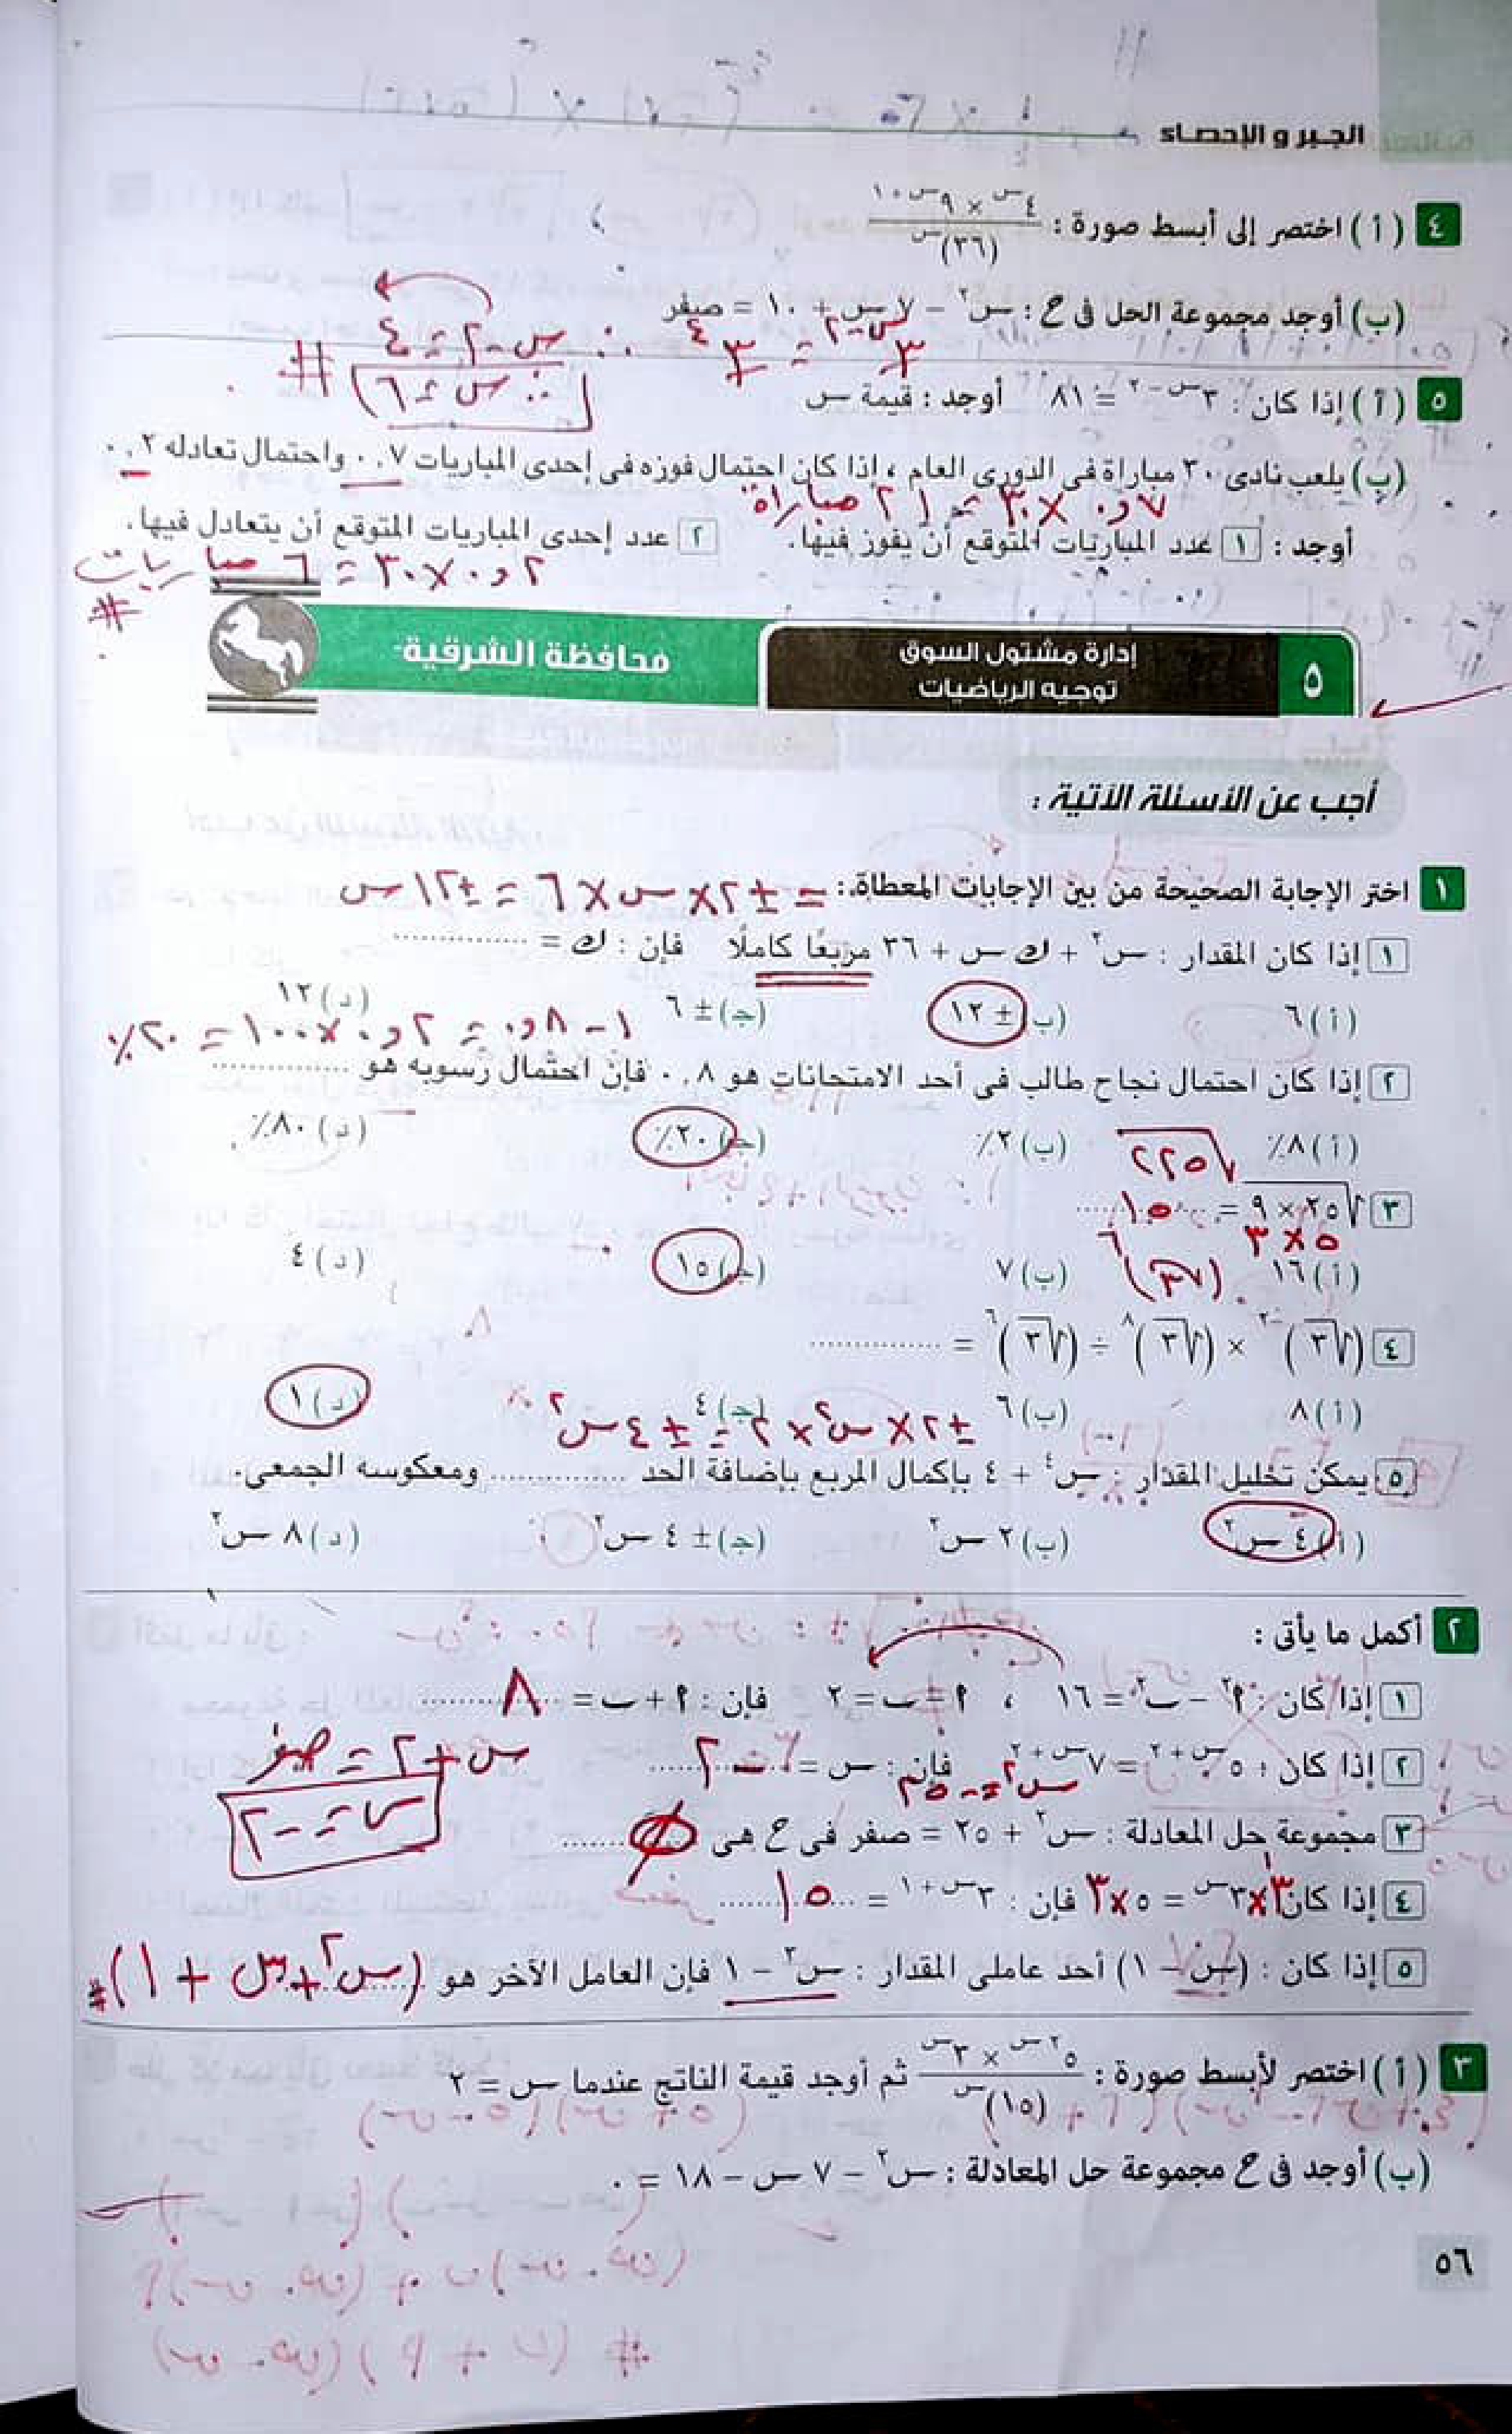 الجبر و الإحصاء
٤ ( أ ) اختصر إلى أبسط صورة : ٤^س × ٩^س+١ / (٣٦)^س
(ب) أوجد مجموعة الحل فى ح : س٢ – ٧ س + ١٠ = صفر
٣^س-٢ = ٣^٤ ∴ س - ٢ = ٤
∴ س = ٦ #
٥ ( أ ) إذا كان : ٣^س – ٢ = ٨١ أوجد : قيمة س
(ب) يلعب نادى ٣٠ مباراة فى الدورى العام ، إذا كان احتمال فوزه فى إحدى المباريات ٠,٧ واحتمال تعادله ٠,٢
٠,٧ × ٣٠ = ٢١ مباراة
أوجد : ١ عدد المباريات المتوقع أن يفوز فيها. ٢ عدد إحدى المباريات المتوقع أن يتعادل فيها.
٠,٢ × ٣٠ = ٦ مباريات
#
٥ إدارة مشتول السوق توجيه الرياضيات محافظة الشرقية
أجب عن الأسئلة الآتية :
١ اختر الإجابة الصحيحة من بين الإجابات المعطاة : = ± ٢ × س × ٦ = ± ١٢ س
١ إذا كان المقدار : س٢ + ك س + ٣٦ مربعًا كاملًا فإن : ك = ..............
( أ ) ٦ (ب) ± ١٢ (جـ) ± ٦ ( د ) ١٢
١ - ٠,٨ = ٠,٢ × ١٠٠ = ٢٠٪
٢ إذا كان احتمال نجاح طالب فى أحد الامتحانات هو ٠,٨ فإن احتمال رسوبه هو ..............
( أ ) ٨٪ (ب) ٢٪ (جـ) ٢٠٪ ( د ) ٨٠٪
√٢٢٥
٣ √٢٥ × ٩ = ....١٥....
٥ × ٣
( أ ) ١٦ (ب) ٧ (جـ) ١٥ ( د ) ٤
(√٣)^٦
٤ (√٣)^-٢ × (√٣)^٨ ÷ (√٣)^٦ = ..............
( أ ) ٨ (ب) ٦ (جـ) ٤ ( د ) ١
± ٢ × س٢ × ٢ = ± ٤ س٢
٥ يمكن تحليل المقدار : س٤ + ٤ بإكمال المربع بإضافة الحد .............. ومعكوسه الجمعى.
( أ ) ٤ س٢ (ب) ٢ س٢ (جـ) ± ٤ س٢ ( د ) ٨ س٢
٢ أكمل ما يأتى :
١ إذا كان : ٩٢ – ب٢ = ١٦ ، ٩ – ب = ٢ فإن : ٩ + ب = ....٨....
٢ إذا كان : ٥^س + ٢ = ٧^س + ٢ فإن : س = ....-٢....
س + ٢ = صفر
س = -٢
س٢ = -٢٥
٣ مجموعة حل المعادلة : س٢ + ٢٥ = صفر فى ح هى ....∅....
٤ إذا كان ٣ × ٣^س = ٥ × ٣ فإن : ٣^س + ١ = ....١٥....
٥ إذا كان : (س – ١) أحد عاملى المقدار : س٣ – ١ فإن العامل الآخر هو (س٢ + س + ١) #
٣ ( أ ) اختصر لأبسط صورة : ٥^٢ س × ٣^س / (١٥)^س ثم أوجد قيمة الناتج عندما س = ٢
(ب) أوجد فى ح مجموعة حل المعادلة : س٢ – ٧ س – ١٨ = ٠
٥٦